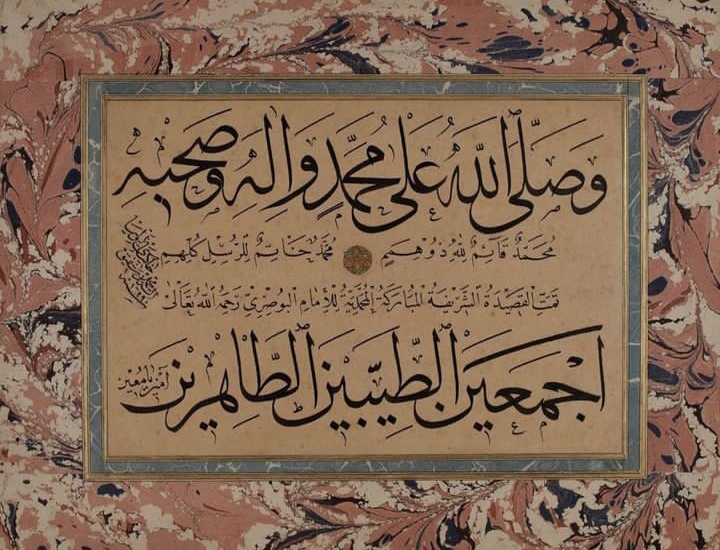 وَصَلَّى اللهُ عَلَى مُحَمَّدٍ وَاٰلِهِ وَصَحْبِهِ
مُحَمَّدٌ قَائِمٌ لِلّٰهِ ذُو هِمَمٍ مُحَمَّدٌ خَاتِمٌ لِلرُّسْلِ كُلِّهِمِ
تمت القصيدة الشريفة المباركة المحمدية للإمام البوصري رحمه الله تعالى
اَجْمَعِينَ الطَّيِّبِينَ الطَّاهِرِينَ
آمين يا معين